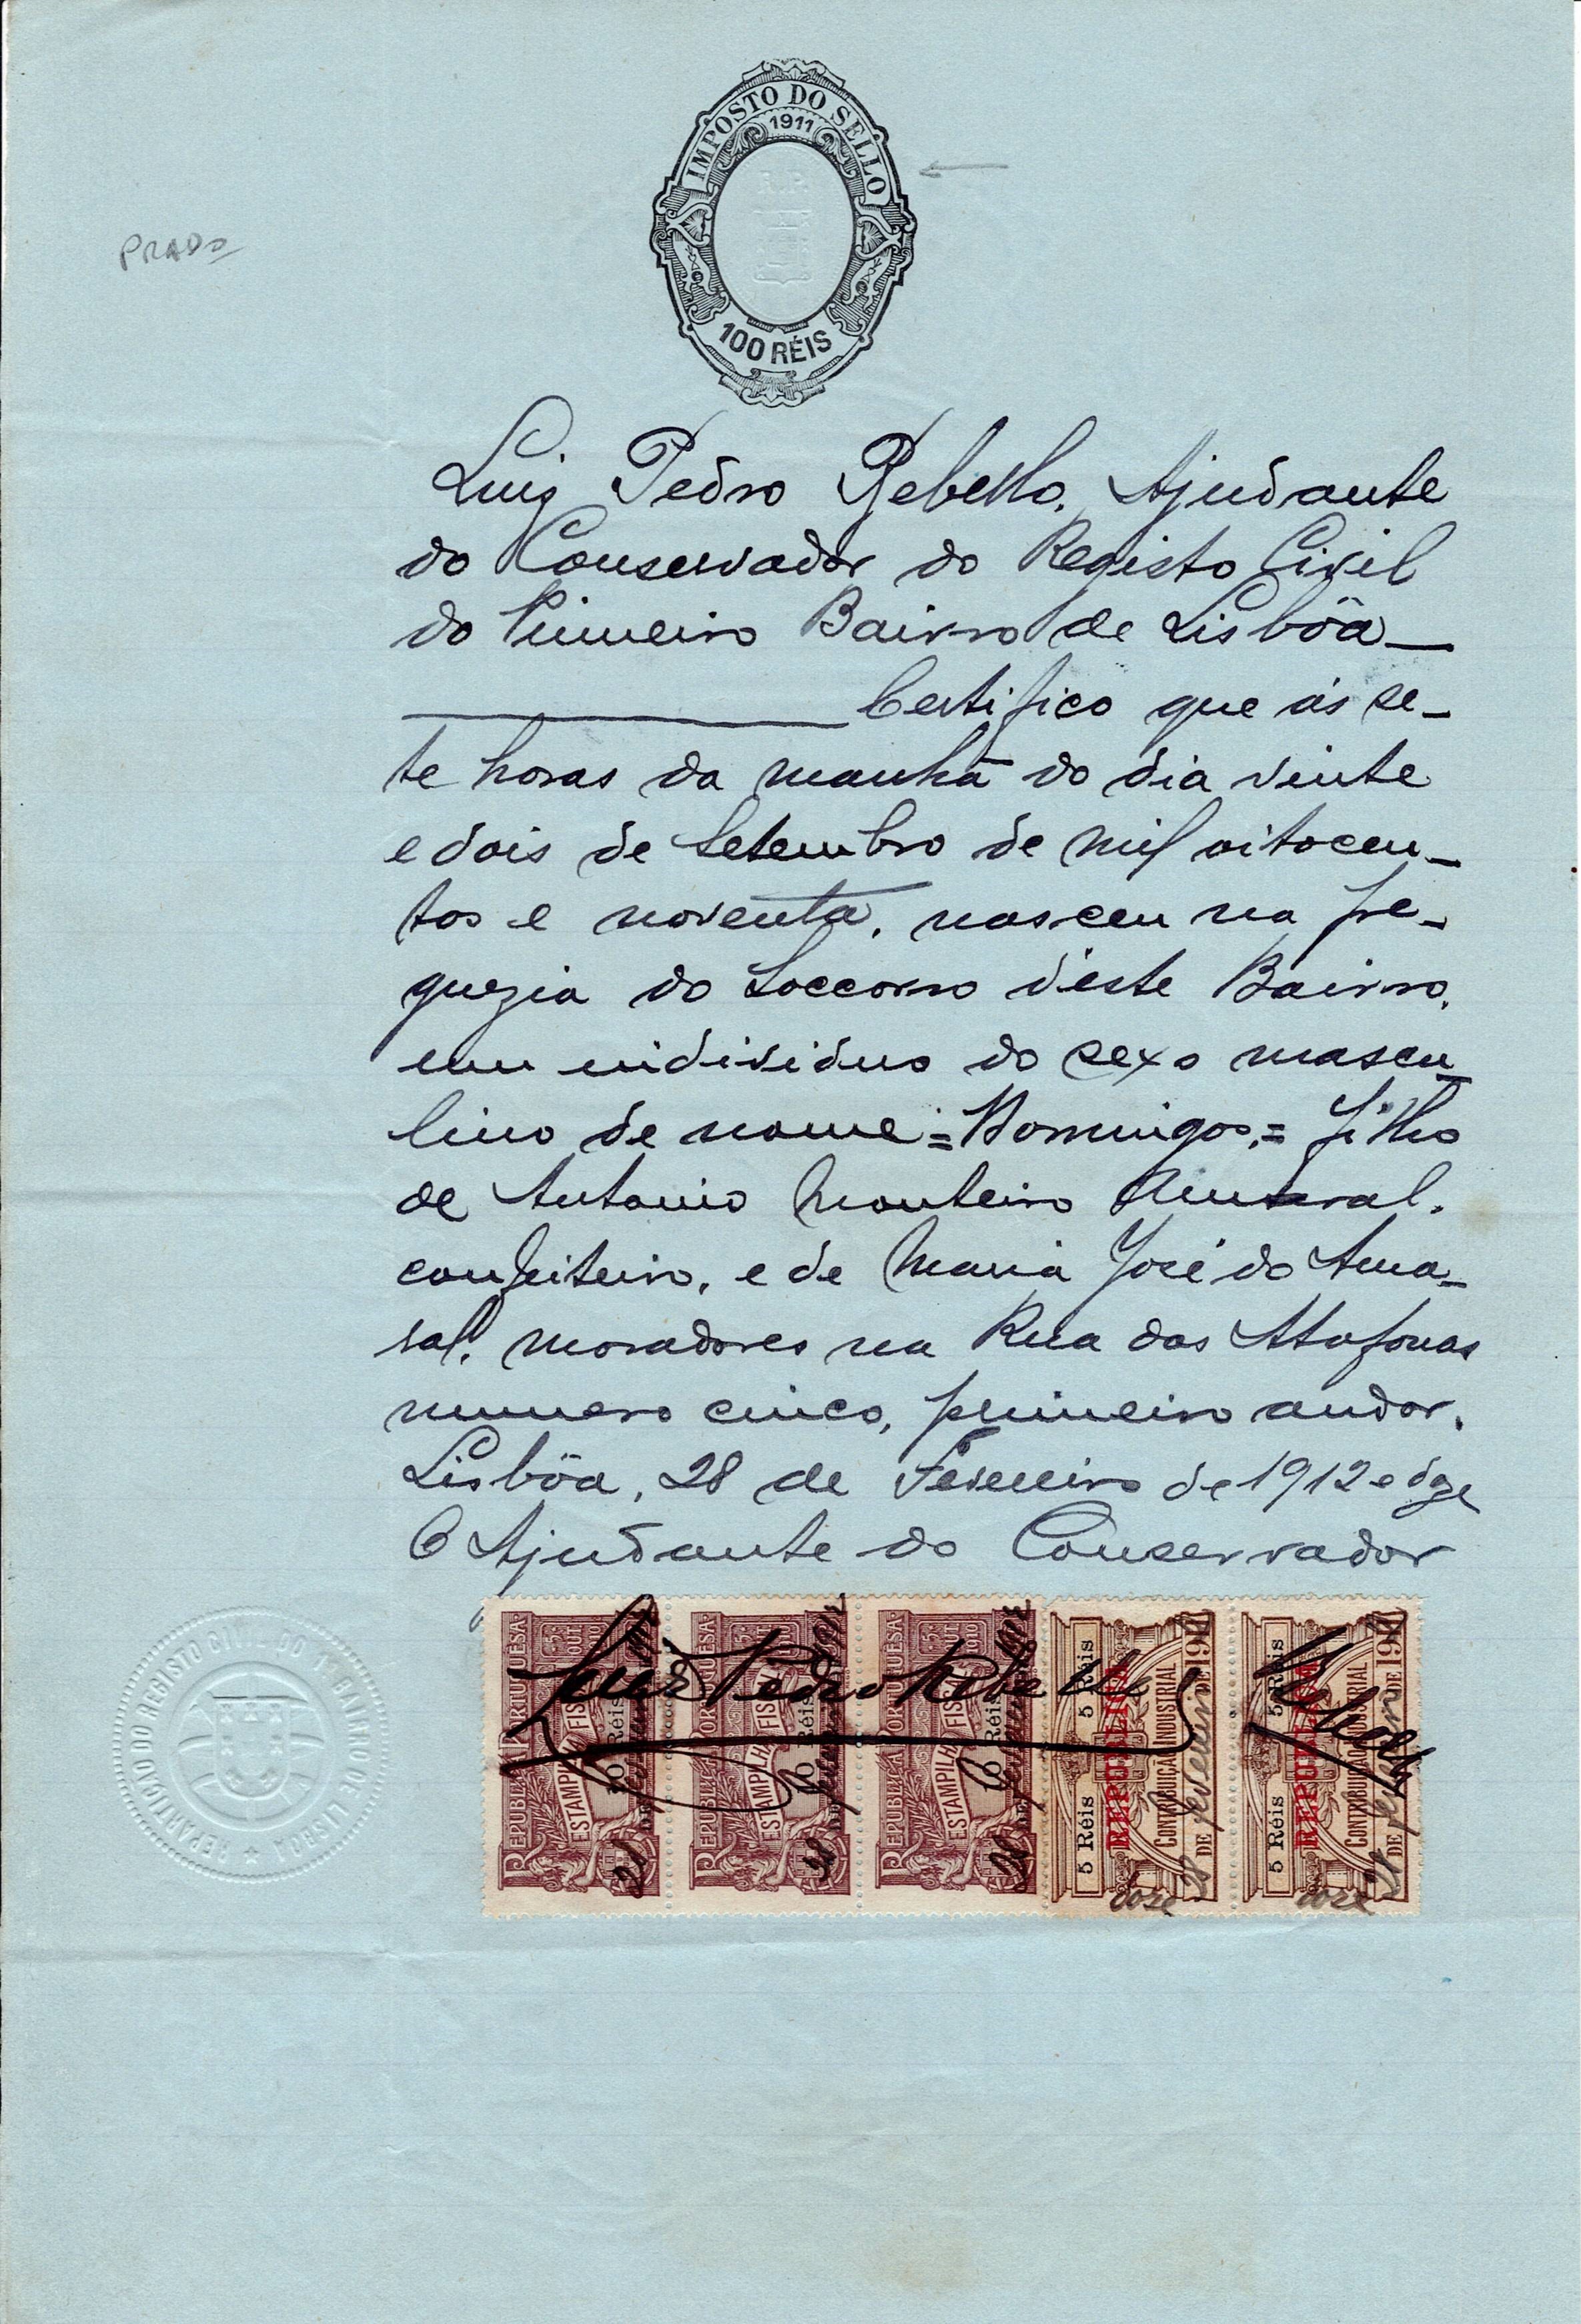 IMPOSTO DO SELLO
1911
R.P.
100 RÉIS
PRADO
Luiz Pedro Rebello, Ajudante
do Conservador do Registo Civil
do Primeiro Bairro de Lisbôa
Certifico que ás se-
te horas da manhã do dia vinte
e dois de Setembro de mil oitocen-
tos e noventa, nasceu na fre-
guezia do Soccorro d'este Bairro,
um individuo do sexo mascu-
lino de nome = Domingos, = filho
de Antonio Monteiro Amaral,
confeiteiro, e de Maria José do Ama-
ral, moradores na Rua das Atafonas
numero cinco, primeiro andar.
Lisbôa, 28 de Fevereiro de 1912 e doze
O Ajudante do Conservador
Luiz Pedro Rebello
REPARTIÇÃO DO REGISTO CIVIL DO 1º BAIRRO DE LISBOA
REPUBLICA PORTUGUESA 5 OUT 1910 ESTAMPILHA FISCAL 10 Réis 28 DE Fevereiro 1912
REPUBLICA PORTUGUESA 5 OUT 1910 ESTAMPILHA FISCAL 10 Réis 28 DE Fevereiro 1912
REPUBLICA PORTUGUESA 5 OUT 1910 ESTAMPILHA FISCAL 10 Réis 28 DE Fevereiro 1912
5 Réis 5 Réis REPUBLICA CONTRIBUIÇÃO INDUSTRIAL 28 DE Fevereiro DE 191 doze
5 Réis 5 Réis REPUBLICA CONTRIBUIÇÃO INDUSTRIAL 28 DE Fevereiro DE 191 doze